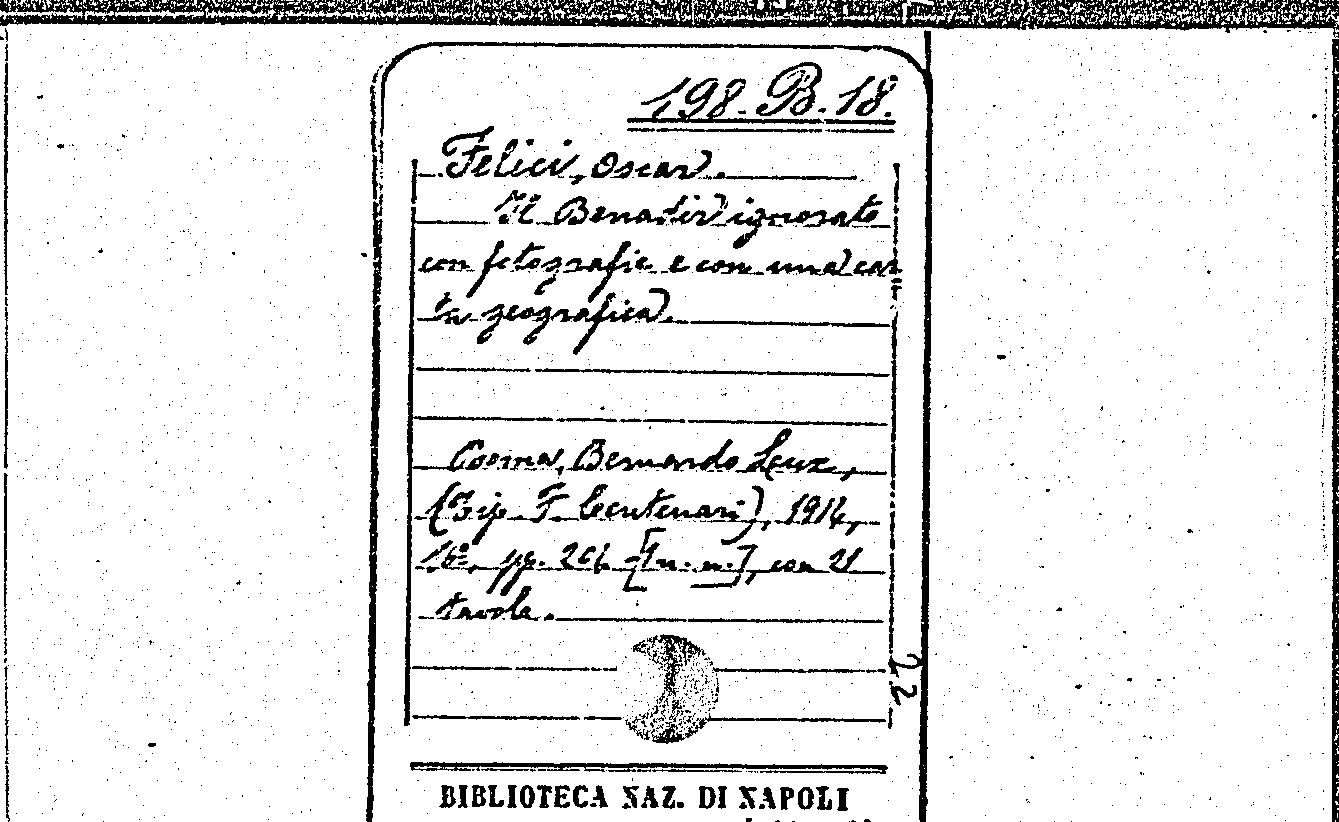 198.B.18.
Felici, Oscar.
Il Benadir ignorato
con fotografie e con una car
ta geografica.
Roma, Bernardo Lux,
(Tip. F. Centenari), 1914,
16º, pp. [n. n.], con 21
tavole.
22
BIBLIOTECA NAZ. DI NAPOLI